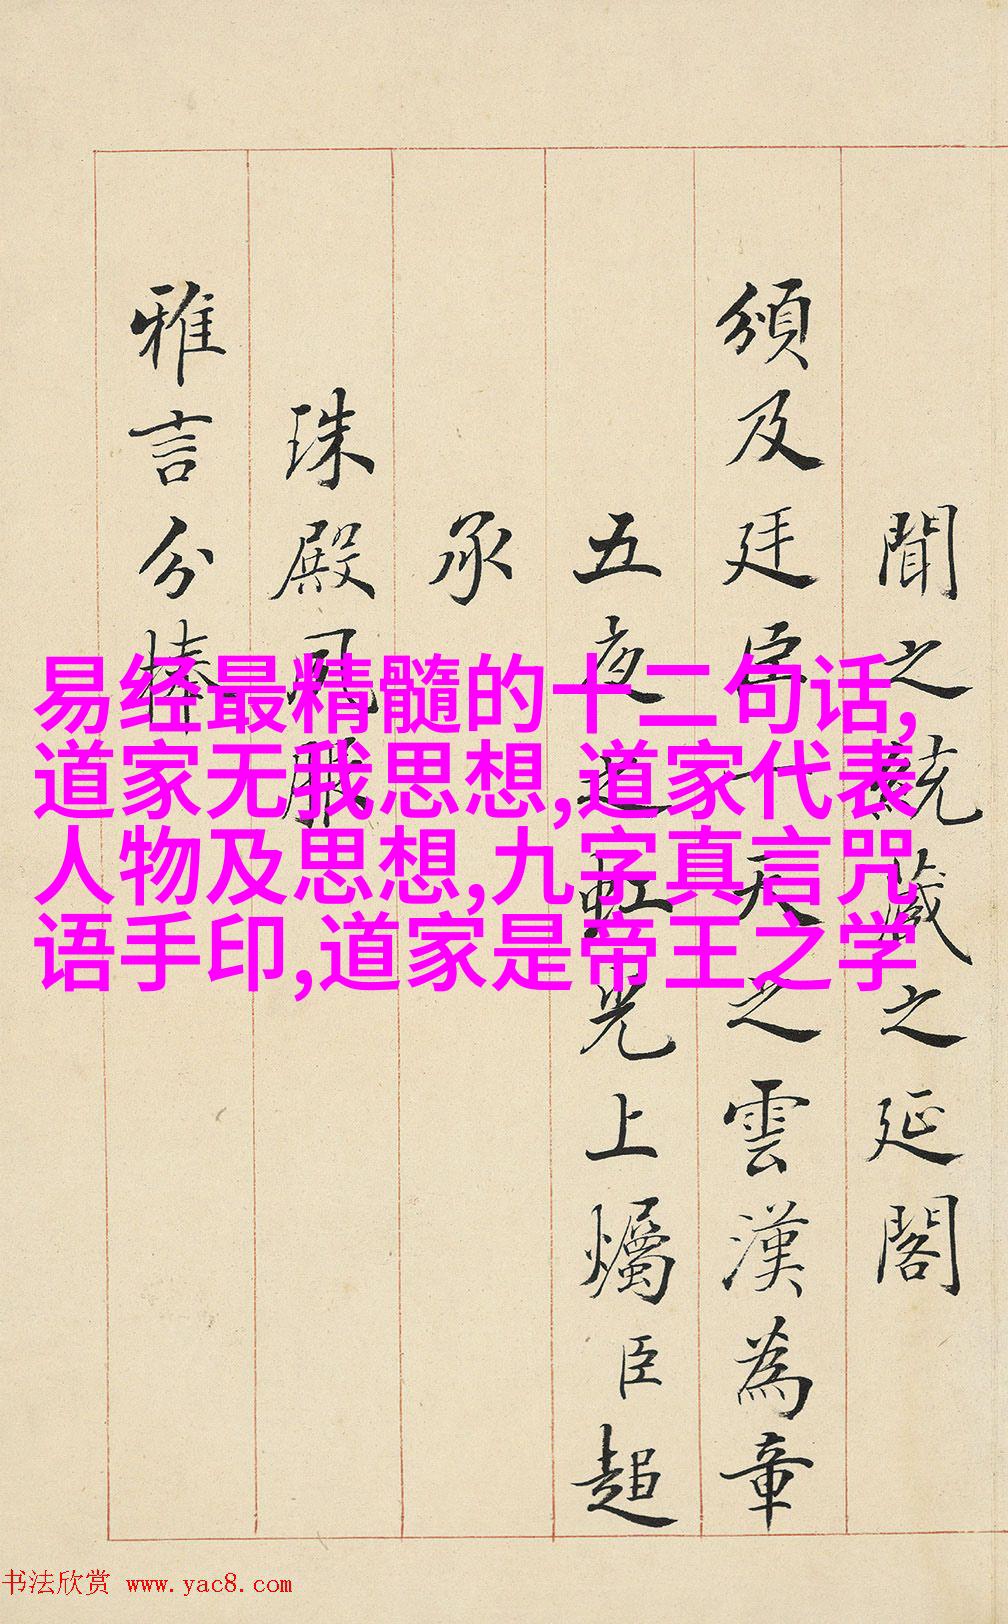 聞之統藏之延閣
頒及廷臣一天之雲漢為章
五夜虹光上爥臣超
承
珠殿
雅言分捧
易经最精髓的十二句话,
道家无我思想,道家代表
人物及思想,九字真言咒
语手印,道家是帝王之学
书法欣赏 www.yac8.com